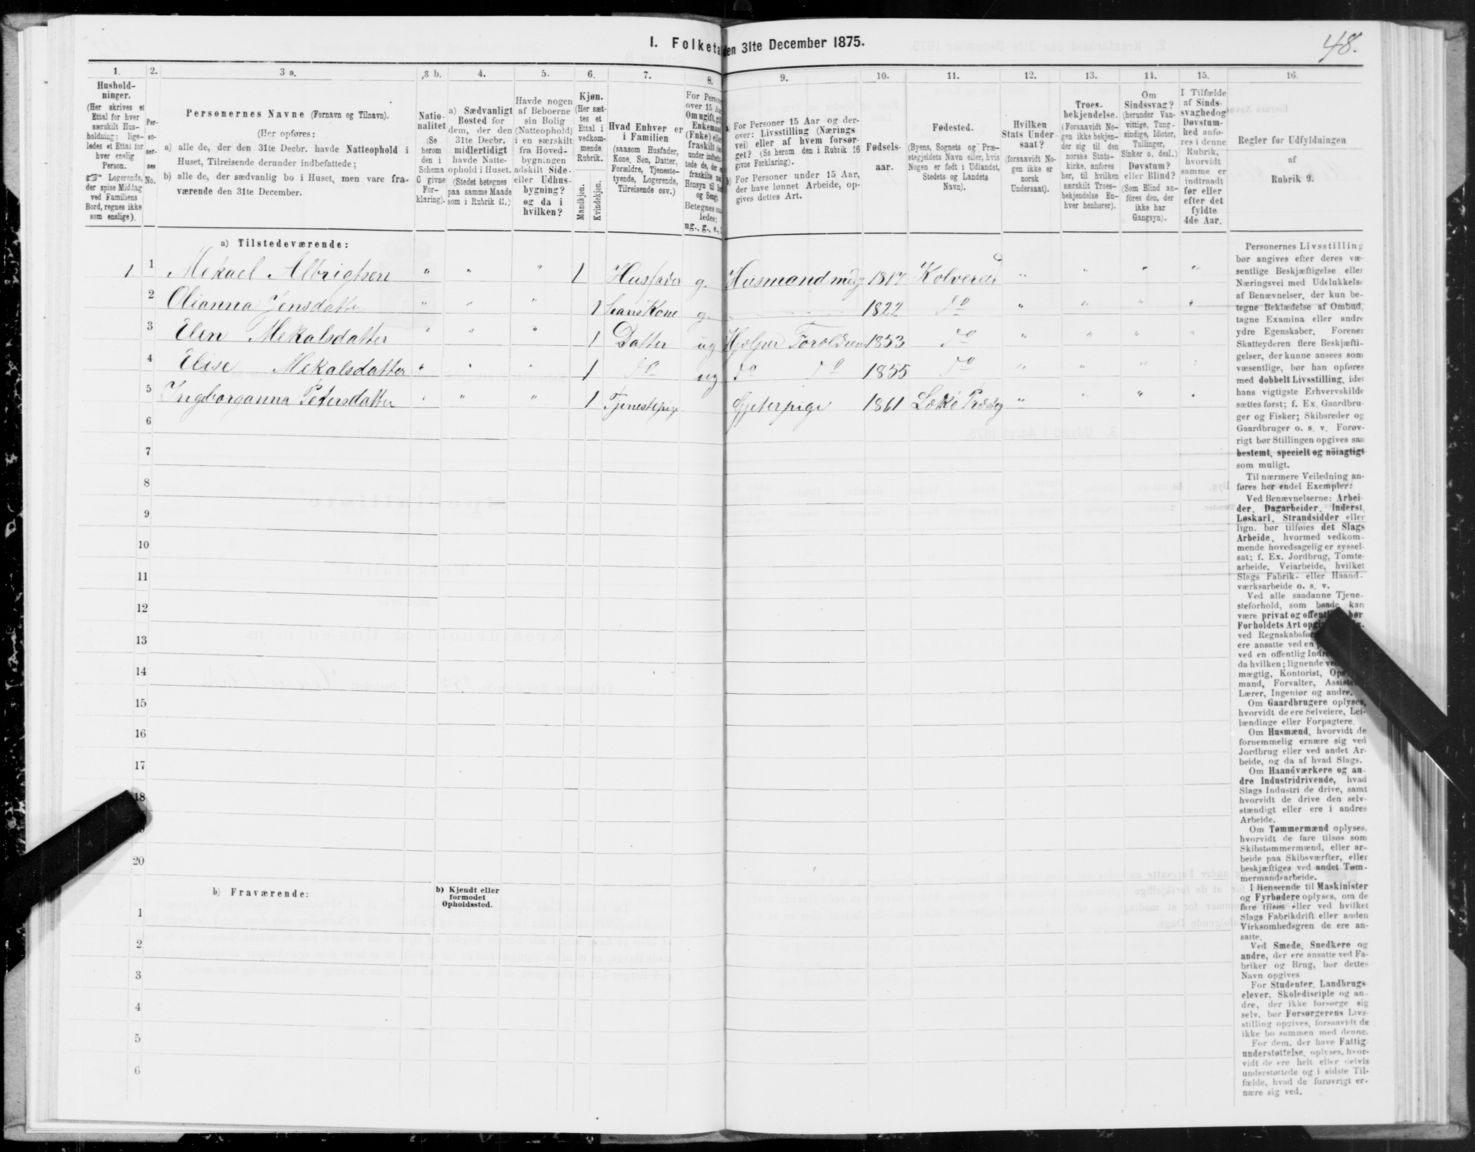 I. Folketa en 31te December 1875.
48.
1. 2. 3 a. 3 b. 4. 5. 6. 7. 8. 9. 10. 11. 12. 13. 14. 15. 16.
Hushold-
ninger.
(Her skrives et
Ettal for hver
særskilt Hus-
holdning; lige-
ledes et Ettal for
hver enslig
Person.
☞ Logerende,
der spise Middag
ved Familiens
Bord, regnes ikke
som enslige).
Per-
so-
ner-
nes
No.
Personernes Navne (Fornavn og Tilnavn).
(Her opføres:
a) alle de, der den 31te Decbr. havde Natteophold i
Huset, Tilreisende derunder indbefattede;
b) alle de, der sædvanlig bo i Huset, men vare fra-
værende den 31te December.
Natio-
nalitet
(Se
herom
den i
Schema
C givne
For-
klaring).
a) Sædvanligt
Bosted for
dem, der den
31te Decbr.
midlertidigt
havde Natte-
ophold i Huset.
(Stedet betegnes
paa samme Maade
som i Rubrik 11.)
Havde nogen
af Beboerne
sin Bolig
(Natteophold)
i en særskilt
fra Hoved-
bygningen
adskilt Side-
eller Udhus-
bygning?
og da i
hvilken?
Kjøn.
(Her sæt-
tes et
Ettal i
vedkom-
mende
Rubrik.
Mandkjøn.
Kvindekjøn.
Hvad Enhver er
i Familien
(saasom Husfader,
Kone, Søn, Datter,
Forældre, Tjeneste-
tyende, Logerende,
Tilreisende osv.)
For Perso
over 15 Aa
Om ugift, gi
Enkema
(Enke) elle
fraskilt
ledes:
ug., g., e.,
For Personer 15 Aar og der-
over: Livsstilling (Nærings-
vei) eller af hvem forsør-
get? (Se herom den i Rubrik 16
givne Forklaring).
For Personer under 15 Aar,
der have lønnet Arbeide, op-
gives dettes Art.
Fødsels-
aar.
Fødested.
(Byens, Sognets og Præ-
stegjeldets Navn eller, hvis
Nogen er født i Udlandet,
Stedets og Landets
Navn).
Hvilken
Stats Under-
saat?
(forsaavidt No-
gen ikke er
norsk
Undersaat).
Troes-
bekjendelse.
(Forsaavidt No-
gen ikke bekjen-
der sig til den
norske Stats-
kirke, anføres
her, til hvilken
særskilt Troes-
bekjendelse En-
hver henhører).
Om
Sindssvag?
(herunder Van-
vittige, Tung-
sindige, Idioter,
Tullinger,
Sinker o. desl.)
Døvstum?
eller Blind?
(Som Blind an-
føres den, der
ikke har
Gangsyn).
I Tilfælde
af Sinds-
svaghed og
Døvstum-
hed anfø-
res i denne
Rubrik,
hvorvidt
samme er
indtraadt
før eller
efter det
fyldte
4de Aar.
Regler for Udfyldningen
af
Rubrik 9.
a) Tilstedeværende:
1 1 Mikael Albrigtsen " " " 1 Husfader g. Husmand 1817 Kolvereid " " " "
2 Olianna Jensdatter " " " 1 hans Kone g. 1822 do " " " "
3 Elen Mekalsdatter " " " 1 Datter ug Hjelper Forældrene 1853 do " " "
4 Elise Mekalsdatter " " " 1 do ug do do 1855 do " " " "
5 Ingborganna Pedersdatter " " " 1 Tjenestepige Gjeterpige 1861 Lekø " " " "
6
7
8
9
10
11
12
13
14
15
16
17
18
20
b) Fraværende:
b) Kjendt eller
formodet
Opholdssted.
1
2
3
4
5
6
Personernes Livsstilling
bør angives efter deres væ-
sentlige Beskjæftigelse eller
Næringsvei med Udelukkelse
af Benævnelser, der kun be-
tegne Beklædelse af Ombud,
tagne Examina eller andre
ydre Egenskaber. Forener
Skatteyderen flere Beskjæfti-
gelser, der kunne ansees som
væsentlige, bør han opføres
med dobbelt Livsstilling, idet
hans vigtigste Erhvervskilde
sættes først; f. Ex. Gaardbru-
ger og Fisker; Skibsreder og
Gaardbruger o. s. v. Forøv-
rigt bør Stillingen opgives saa
bestemt, specielt og nöiagtigt
som muligt.
Til nærmere Veiledning an-
føres her endel Exempler:
Ved Benævnelserne: Arbei-
der, Dagarbeider, Inderst,
Løskarl, Strandsidder eller
lign. bør tilføies det Slags
Arbeide, hvormed vedkom-
mende hovedsagelig er syssel-
sat; f. Ex. Jordbrug, Tomte-
arbeide, Veiarbeide, hvilket
Slags Fabrik- eller Haand-
værksarbeide o. s. v.
Ved alle saadanne Tjene-
steforhold, som baade kan
være privat og offentlig, bør
Forholdets Art
ved Regnskabsfø
ere ansatte ved en
ved en offentlig Ind
da hvilken; lignende ve
mægtig, Kontorist, Op
mand, Forvalter, Assistent,
Lærer, Ingeniør og andre.
Om Gaardbrugere oplyses,
hvorvidt de ere Selveiere, Lei-
lændinge eller Forpagtere.
Om Husmænd, hvorvidt de
fornemmelig ernære sig ved
Jordbrug eller ved andet Ar-
beide, og da af hvad Slags.
Om Haandværkere og an-
dre Industridrivende, hvad
Slags Industri de drive, samt
hvorvidt de drive den selv-
stændigt eller ere i andres
Arbeide.
Om Tømmermænd oplyses,
hvorvidt de fare tilsøs som
Skibstømmermænd, eller ar-
beide paa Skibsværfter, eller
beskjæftiges ved andet Tøm-
mermandsarbeide.
I Henseende til Maskinister
og Fyrbødere oplyses, om de
fare tilsøs eller ved hvilket
Slags Fabrikdrift eller anden
Virksomhedsgren de ere an-
satte.
Ved Smede, Snedkere og
andre, der ere ansatte ved Fa-
briker og Brug, bør dettes
Navn opgives
For Studenter, Landbrugs-
elever, Skoledisciple og an-
dre, der ikke forsørge sig
selv, bør Forsørgerens Livs-
stilling opgives, forsaavidt de
ikke bo sammen med denne.
For dem, der have Fattig-
understøttelse, oplyses, hvor-
vidt de ere helt eller delvis
understøttede og i sidste Til-
fælde, hvad de forøvrigt er-
nære sig ved.